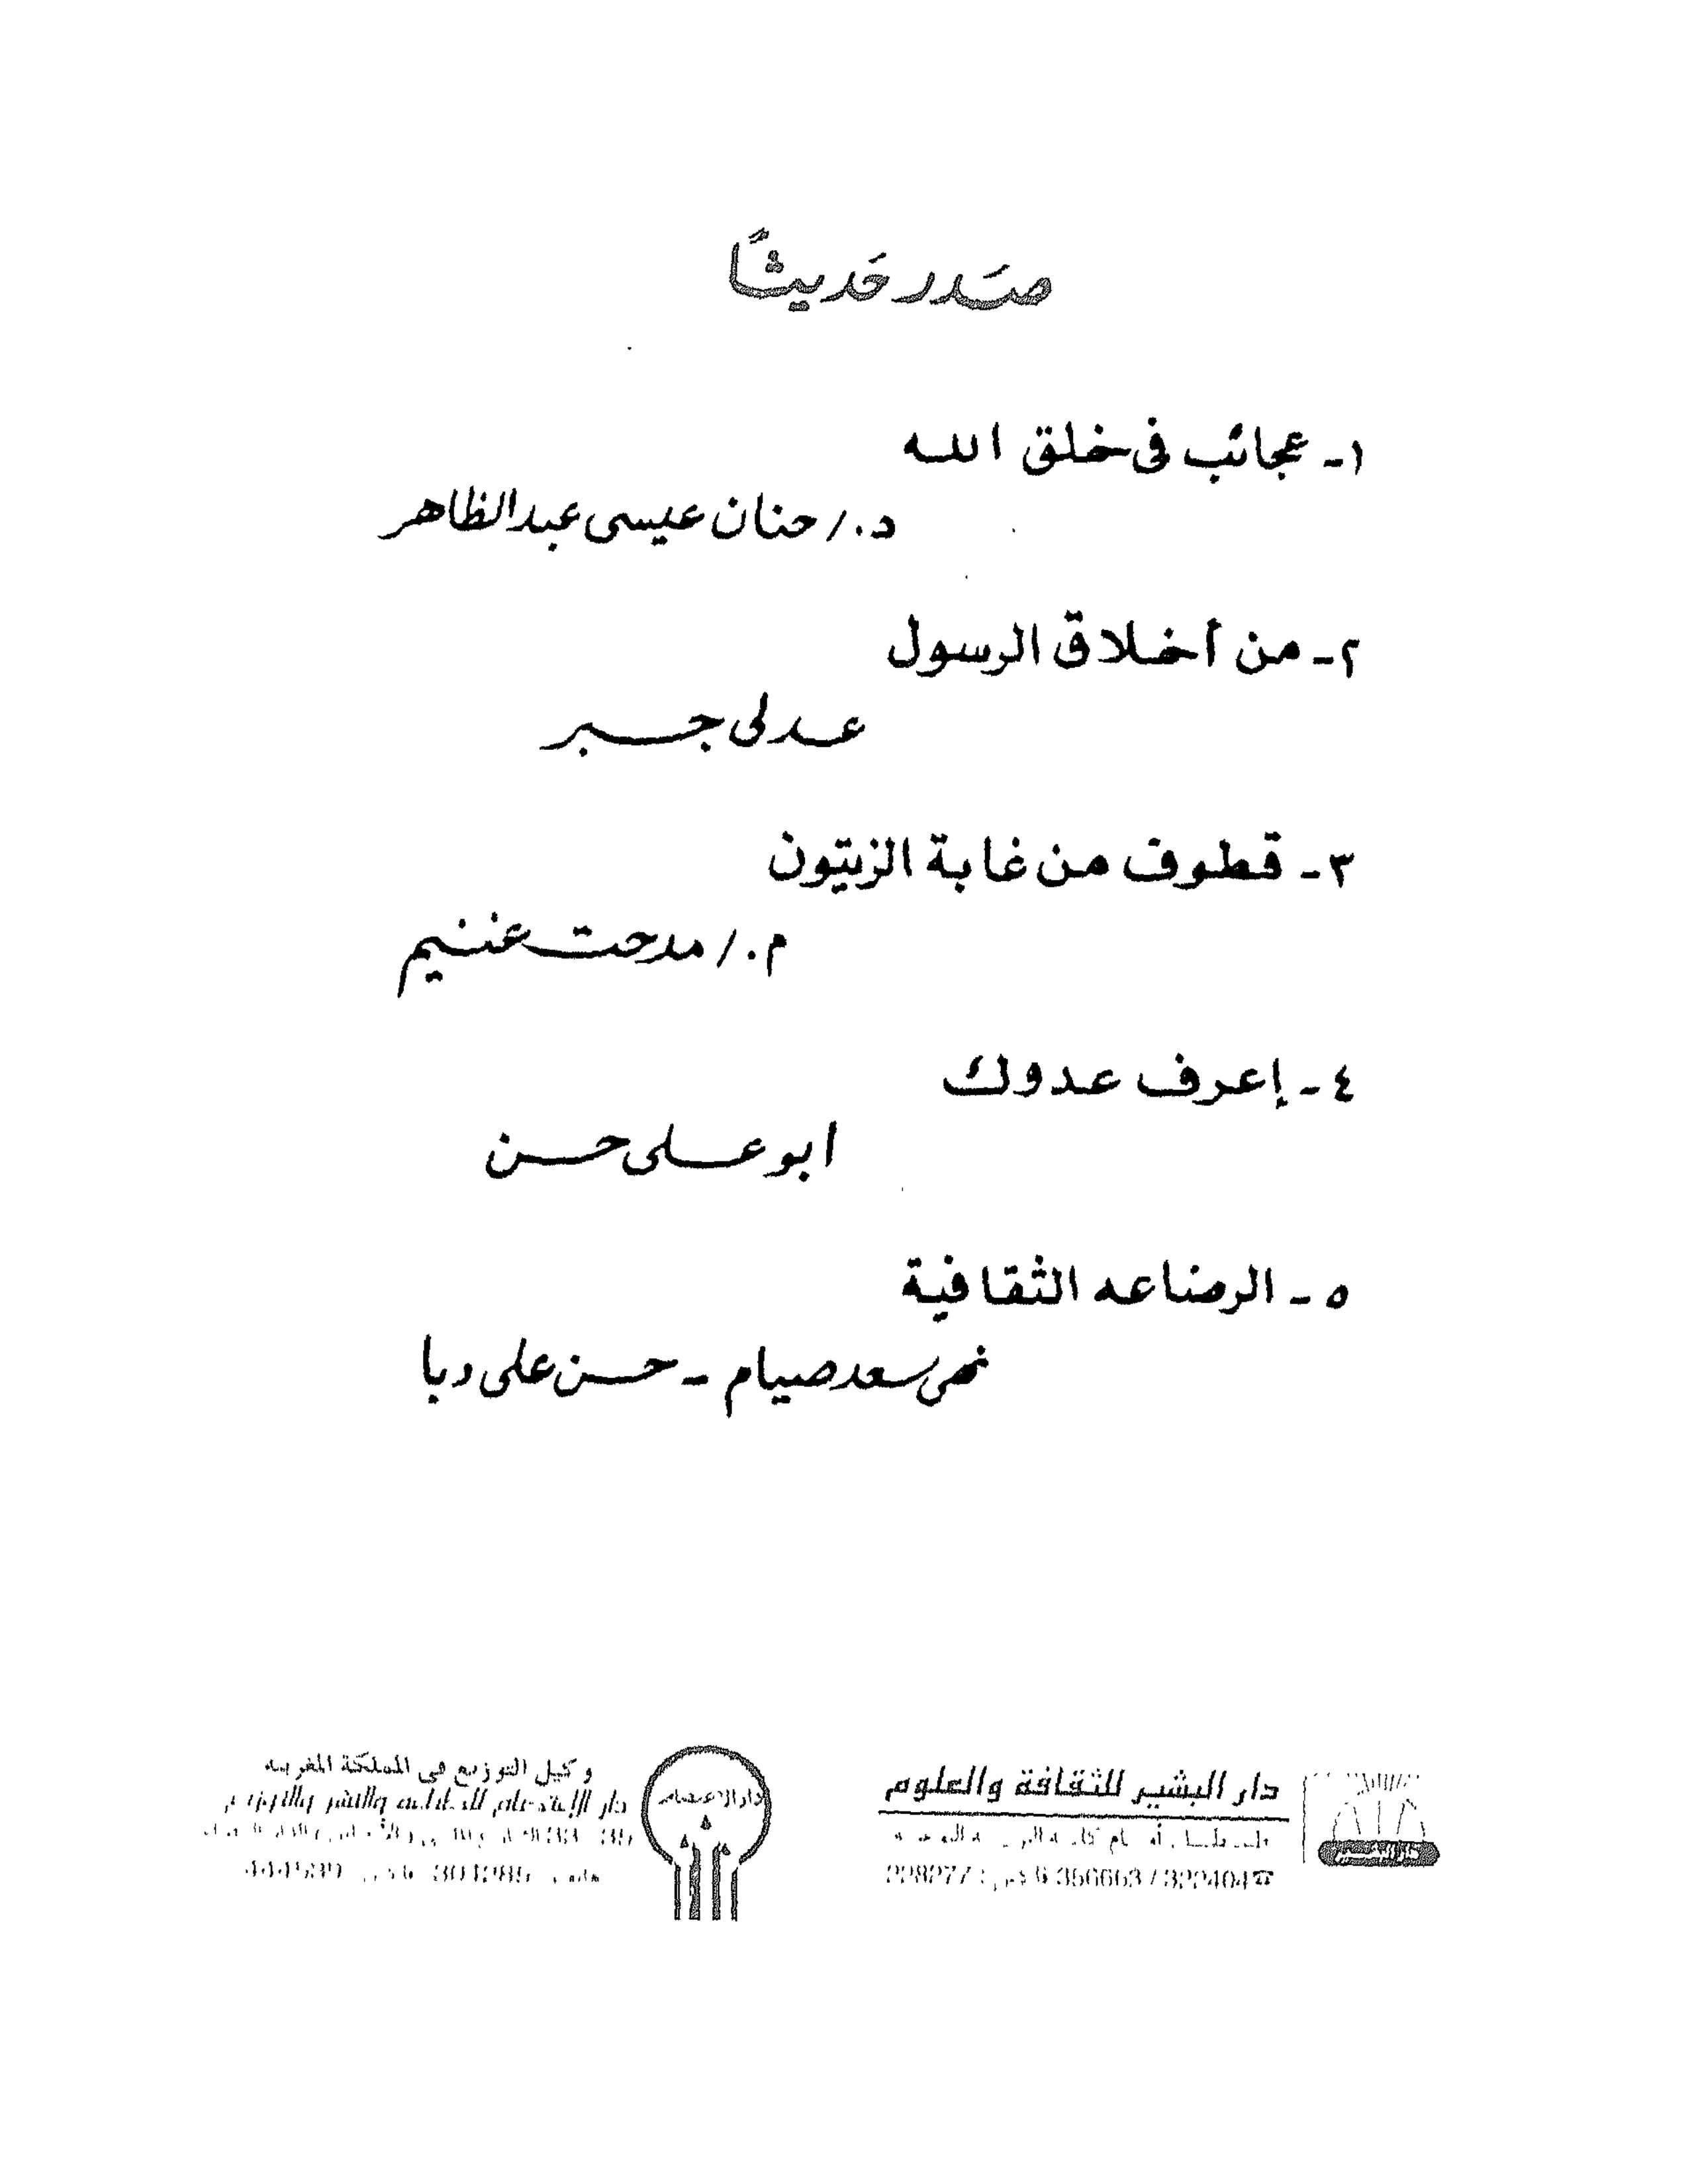 صَدر حَديثًا
١- عجائب فى خلق الله
د./ حنان عيسى عبدالظاهر
٢- من أخلاق الرسول
عدلى جبر
٣- قطوف من غابة الزيتون
م./ مدحت غنيم
٤- إعرف عدوك
ابو على حسن
٥- الرضاعه الثقافية
نهى سعد صيام - حسن على دبا
دار البشير للثقافة والعلوم
☎322404 / 356663 فاكس : 228277
دار الاعتصام
وكيل التوزيع فى المملكة المغربيه
دار الإعتصام للطباعه والنشر والتوزيع